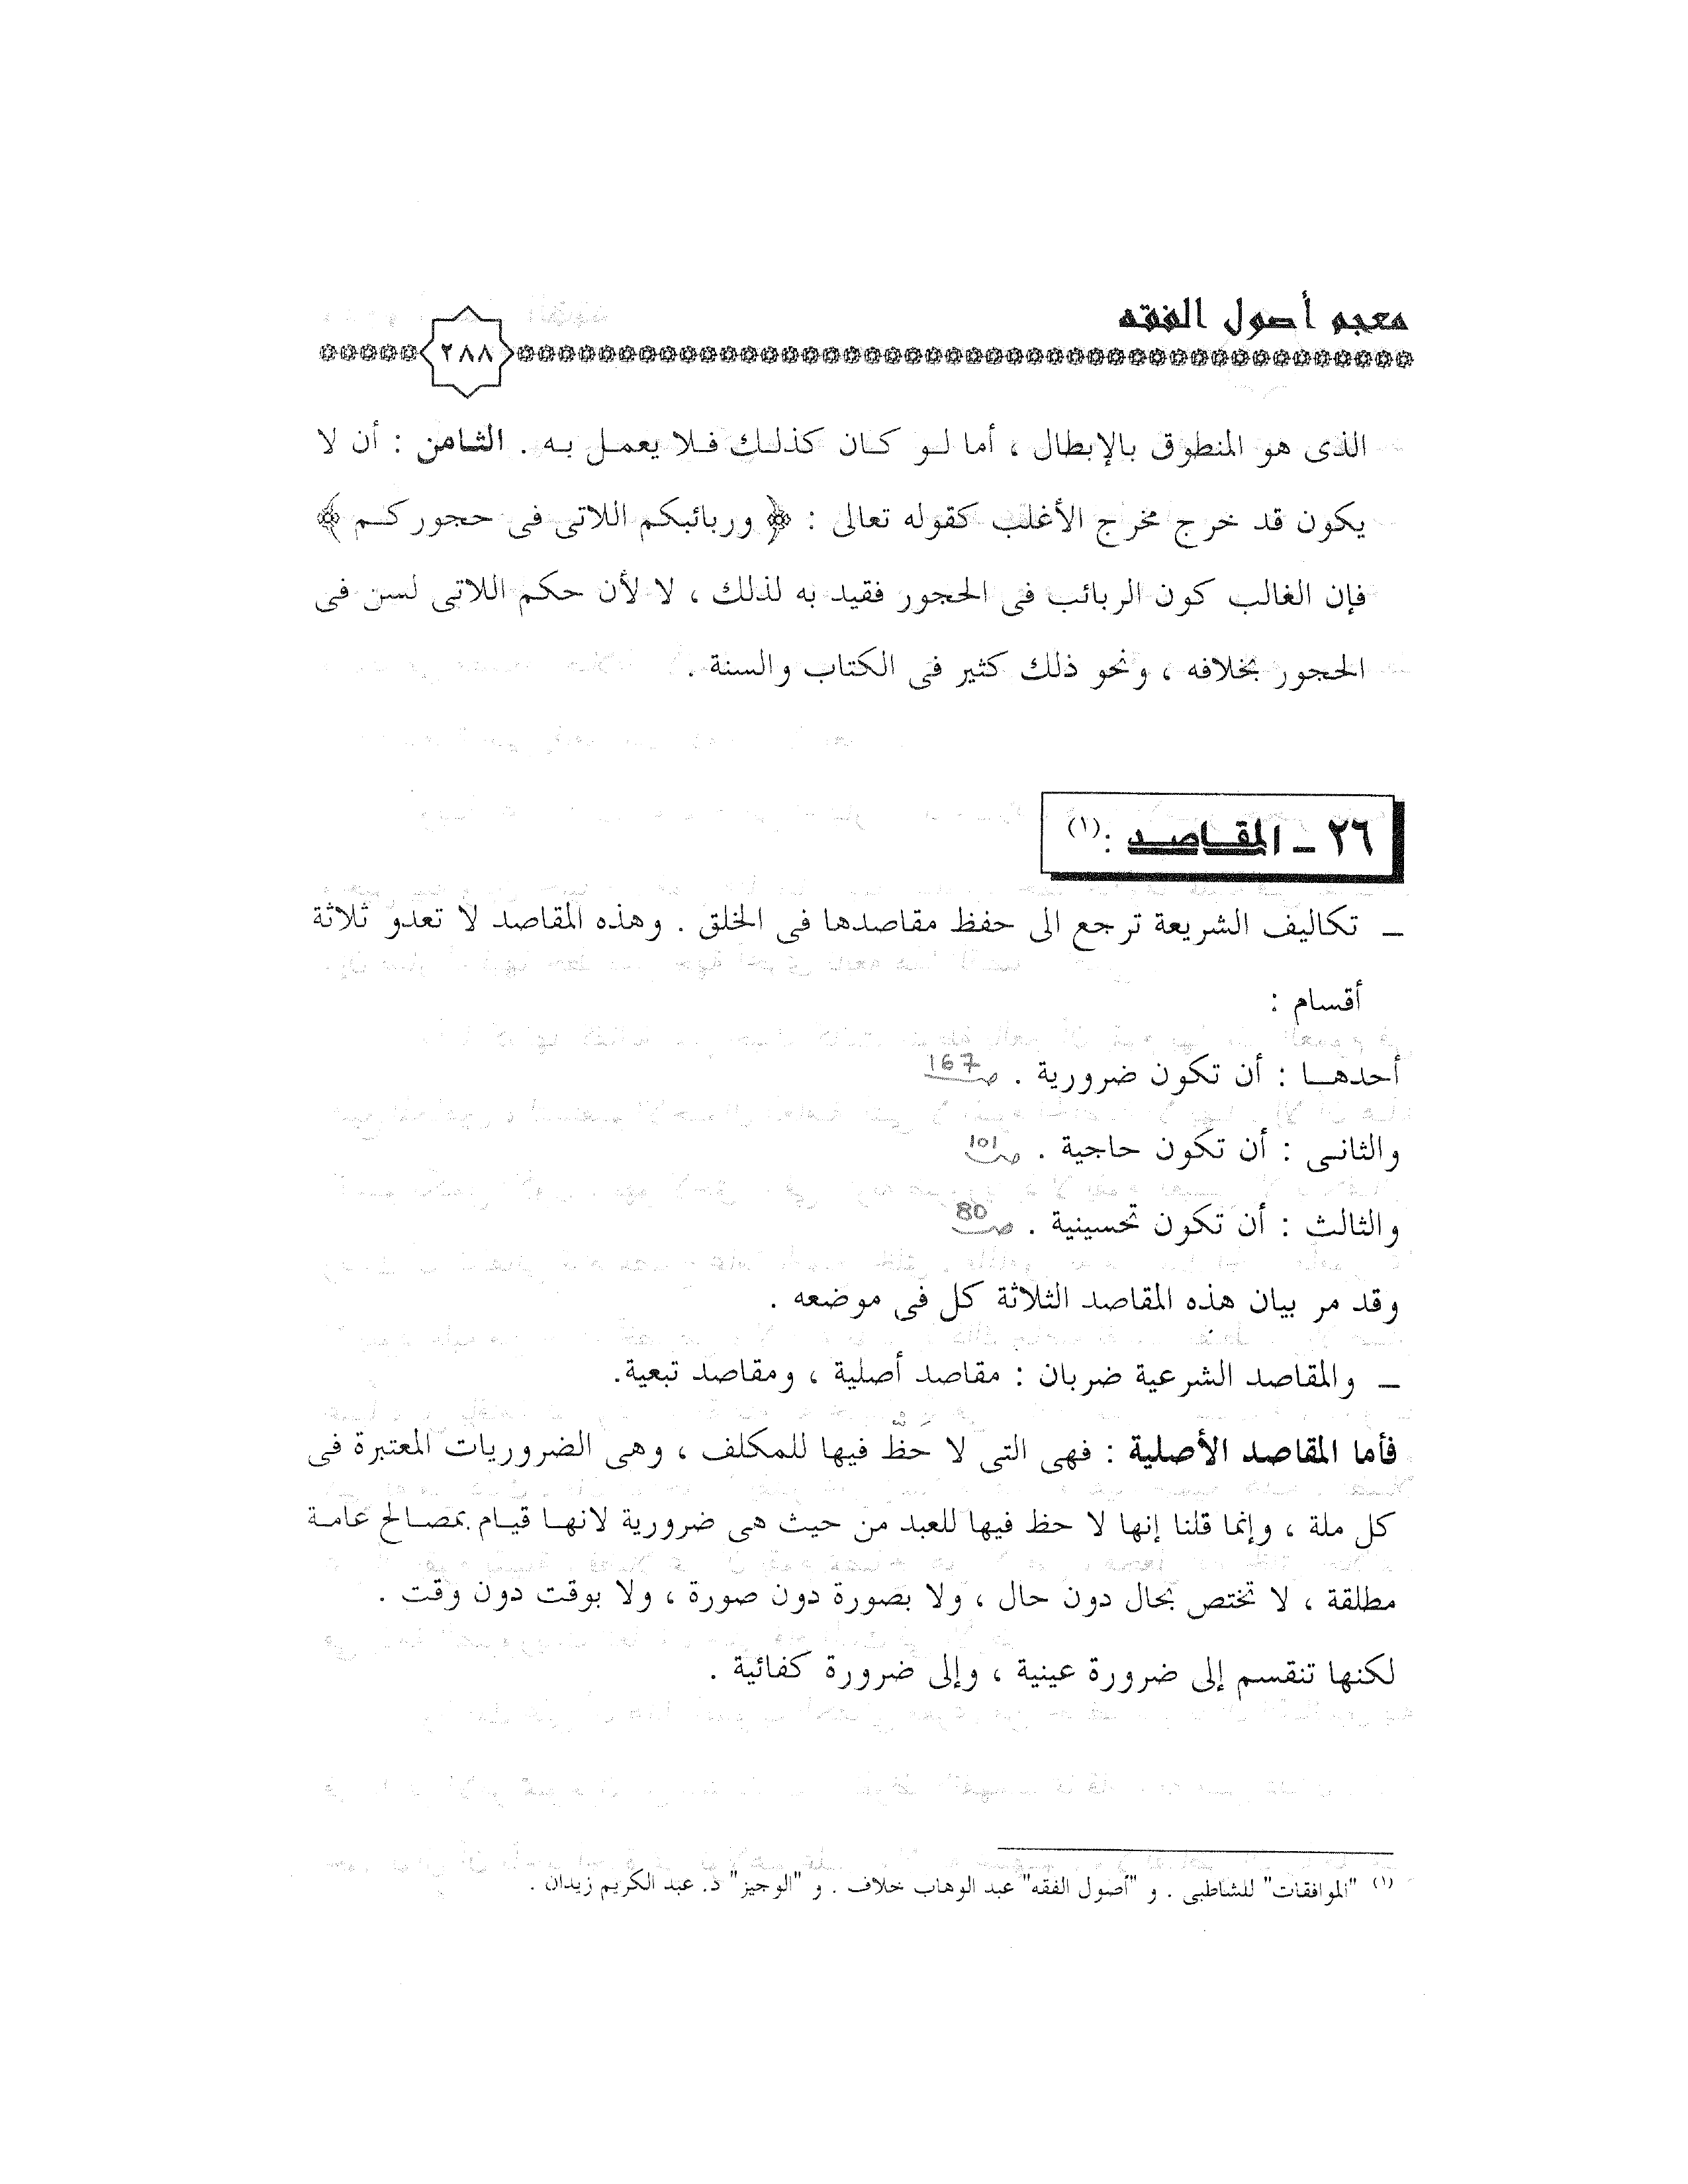 معجم أصول الفقه
٢٨٨
الذى هو المنطوق بالإبطال ، أما لـو كـان كذلـك فـلا يعمـل بـه . الثـامن : أن لا
يكون قد خرج مخرج الأغلب كقوله تعالى : ﴿ وربائبكم اللاتى فى حجوركـم ﴾
فإن الغالب كون الربائب فى الحجور فقيد به لذلك ، لا لأن حكم اللاتى لسن فى
الحجور بخلافه ، ونحو ذلك كثير فى الكتاب والسنة .
٢٦ ـ المقـاصـد :(١)
ـ تكاليف الشريعة ترجع الى حفظ مقاصدها فى الخلق . وهذه المقاصد لا تعدو ثلاثة
أقسام :
أحدهـا : أن تكون ضرورية . صـ 167
والثانـى : أن تكون حاجية . صـ 101
والثالث : أن تكون تحسينية . صـ 80
وقد مر بيان هذه المقاصد الثلاثة كل فى موضعه .
ـ والمقاصد الشرعية ضربان : مقاصد أصلية ، ومقاصد تبعية.
فأما المقاصد الأصلية : فهى التى لا حَظَّ فيها للمكلف ، وهى الضروريات المعتبرة فى
كل ملة ، وإنما قلنا إنها لا حظ فيها للعبد من حيث هى ضرورية لانهـا قيـام بمصـالح عامـة
مطلقة ، لا تختص بحال دون حال ، ولا بصورة دون صورة ، ولا بوقت دون وقت .
لكنها تنقسم إلى ضرورة عينية ، وإلى ضرورة كفائية .
(١) "الموافقات" للشاطبى . و "أصول الفقه" عبد الوهاب خلاف . و "الوجيز" د. عبد الكريم زيدان .